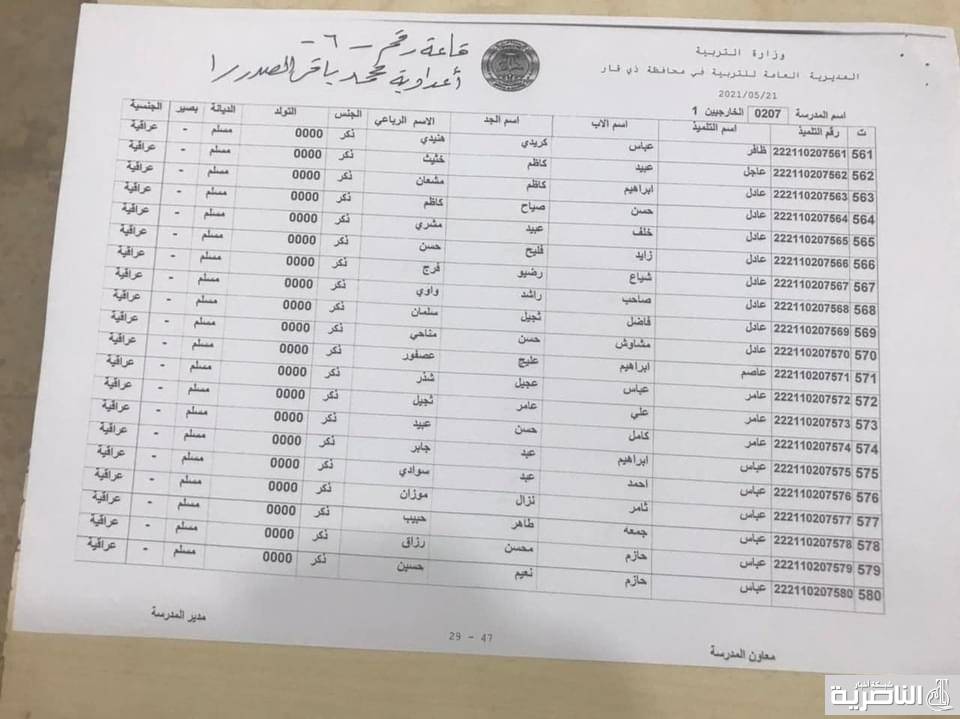 وزارة التربية
المديرية العامة للتربية في محافظة ذي قار
2021/05/21
قاعة رقم - ٦ -
أعدادية محمد باقر الصدر را
اسم المدرسة 0207 الخارجيين 1
ت رقم التلميذ اسم التلميذ اسم الاب اسم الجد الاسم الرباعي الجنس التولد الديانة بصير الجنسية
561 222110207561 ظافر عباس كريدي هنيدي ذكر 0000 مسلم - عراقية
562 222110207562 عاجل عبيد كاظم خثيث ذكر 0000 مسلم - عراقية
563 222110207563 عادل ابراهيم كاظم مشعان ذكر 0000 مسلم - عراقية
564 222110207564 عادل حسن صياح كاظم ذكر 0000 مسلم - عراقية
565 222110207565 عادل خلف عبيد مشري ذكر 0000 مسلم - عراقية
566 222110207566 عادل زايد فليح حسن ذكر 0000 مسلم - عراقية
567 222110207567 عادل شياع رضيو فرج ذكر 0000 مسلم - عراقية
568 222110207568 عادل صاحب راشد واوي ذكر 0000 مسلم - عراقية
569 222110207569 عادل فاضل ثجيل سلمان ذكر 0000 مسلم - عراقية
570 222110207570 عادل مشاوش حسن مناحي ذكر 0000 مسلم - عراقية
571 222110207571 عاصم ابراهيم عليج عصفور ذكر 0000 مسلم - عراقية
572 222110207572 عامر عباس عجيل شذر ذكر 0000 مسلم - عراقية
573 222110207573 عامر علي عامر ثجيل ذكر 0000 مسلم - عراقية
574 222110207574 عامر كامل حسن عبيد ذكر 0000 مسلم - عراقية
575 222110207575 عباس ابراهيم عبد جابر ذكر 0000 مسلم - عراقية
576 222110207576 عباس احمد عبد سوادي ذكر 0000 مسلم - عراقية
577 222110207577 عباس ثامر نزال موزان ذكر 0000 مسلم - عراقية
578 222110207578 عباس جمعه طاهر حبيب ذكر 0000 مسلم - عراقية
579 222110207579 عباس حازم محسن رزاق ذكر 0000 مسلم - عراقية
580 222110207580 عباس حازم نعيم حسين ذكر 0000 مسلم - عراقية
معاون المدرسة
مدير المدرسة
29 - 47
شبكة أخبار
الناصرية